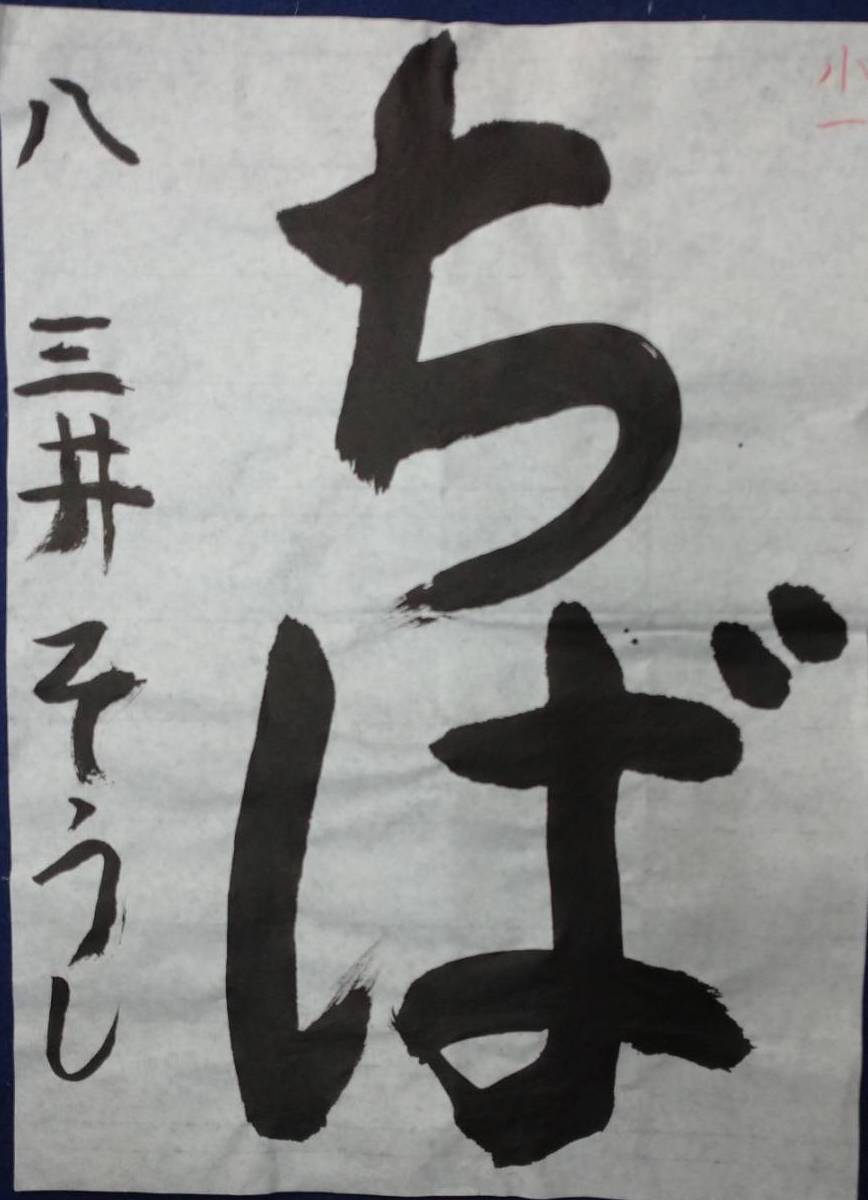 小一
ちば
八 三井そうし